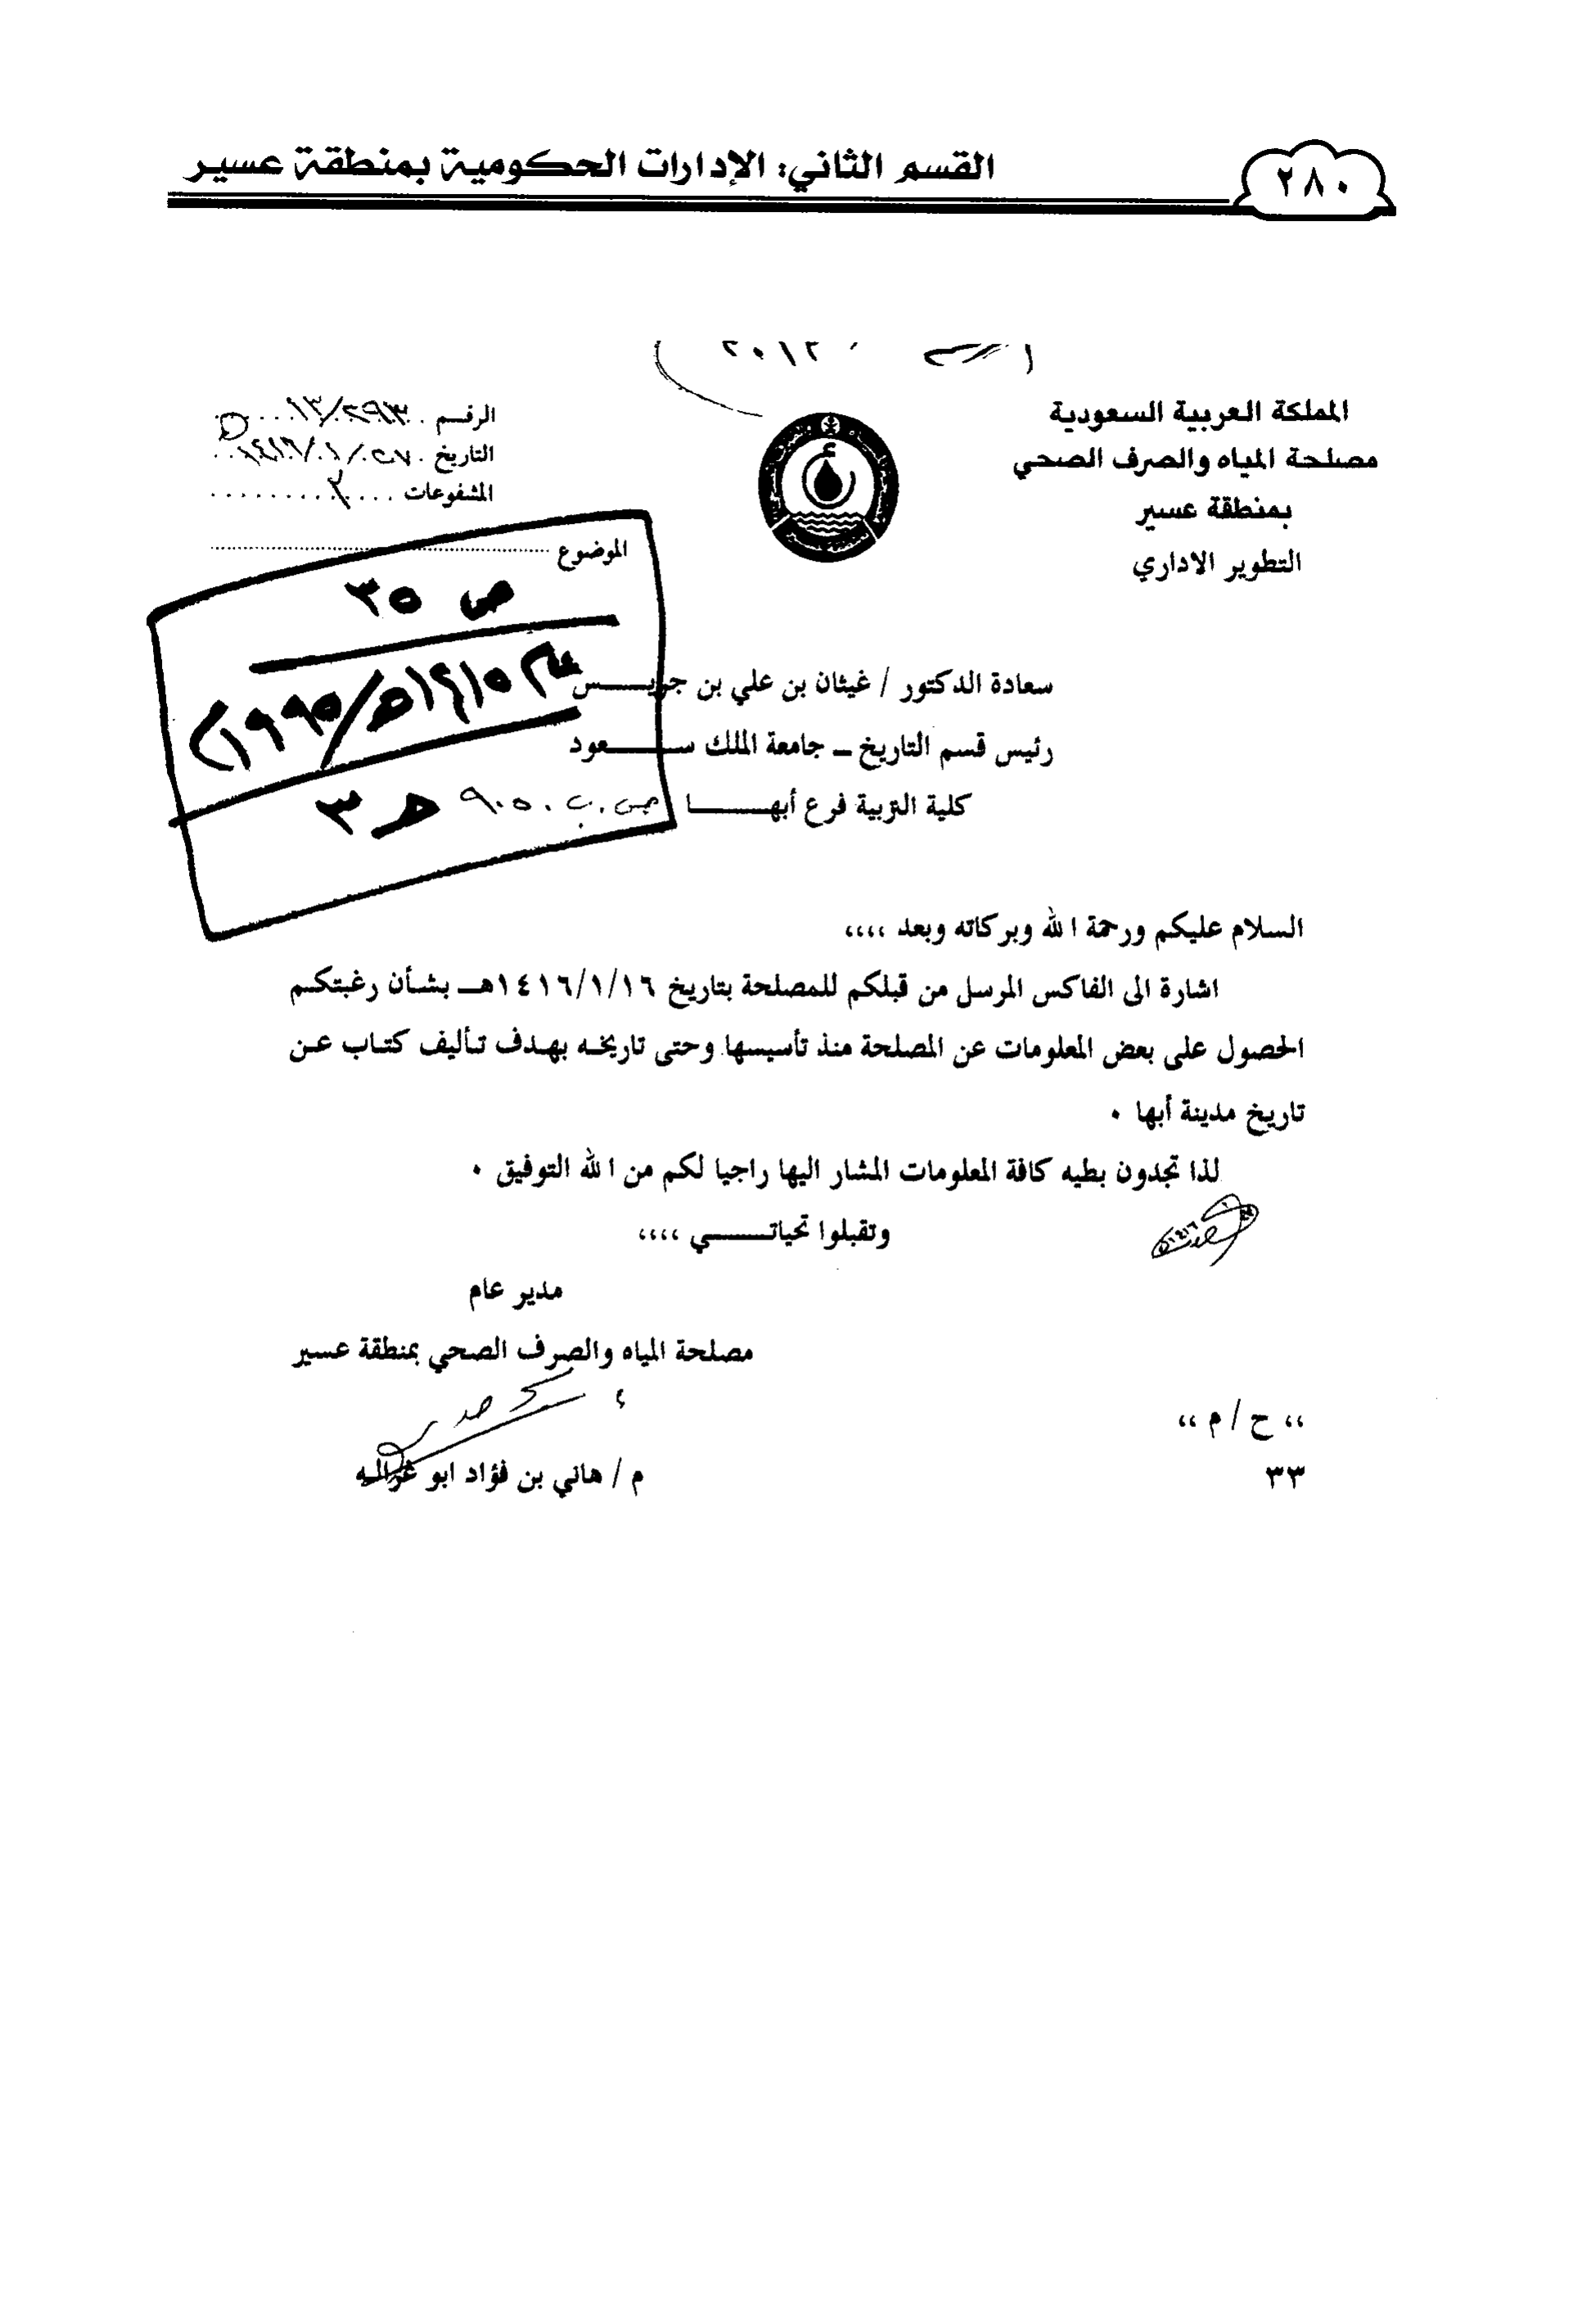 القسم الثاني: الإدارات الحكومية بمنطقة عسير
٢٨٠
المملكة العربية السعودية
مصلحة المياه والصرف الصحي
بمنطقة عسير
التطوير الاداري
الرقم
التاريخ
المشفوعات
الموضوع
ص ٣٥
عام ١٤١٥هـ/١٩٩٥م
هـ ٣
سعادة الدكتور / غيثان بن علي بن جريـــــس
رئيس قسم التاريخ ــ جامعة الملك ســـــعود
كلية التربية فرع أبهـــــا ص.ب ٩٠٥٠
السلام عليكم ورحمة الله وبركاته وبعد ،،،،
اشارة الى الفاكس المرسل من قبلكم للمصلحة بتاريخ ١٤١٦/١/١٦هـ بشأن رغبتكم
الحصول على بعض المعلومات عن المصلحة منذ تأسيسها وحتى تاريخه بهدف تأليف كتاب عن
تاريخ مدينة أبها ٠
لذا تجدون بطيه كافة المعلومات المشار اليها راجيا لكم من الله التوفيق ٠
وتقبلوا تحياتـــــي ،،،،
مدير عام
مصلحة المياه والصرف الصحي بمنطقة عسير
م / هاني بن فؤاد ابو غزاله
،، ح / م ،،
٣٣